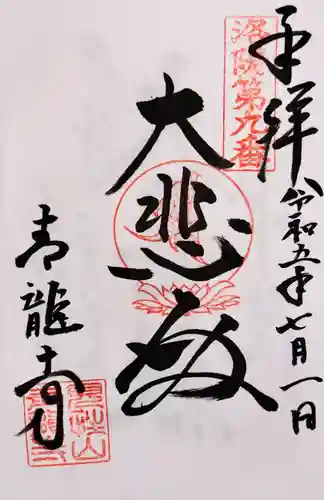 奉拝
令和五年七月一日
洛陽第九番
大悲殿
青龍寺